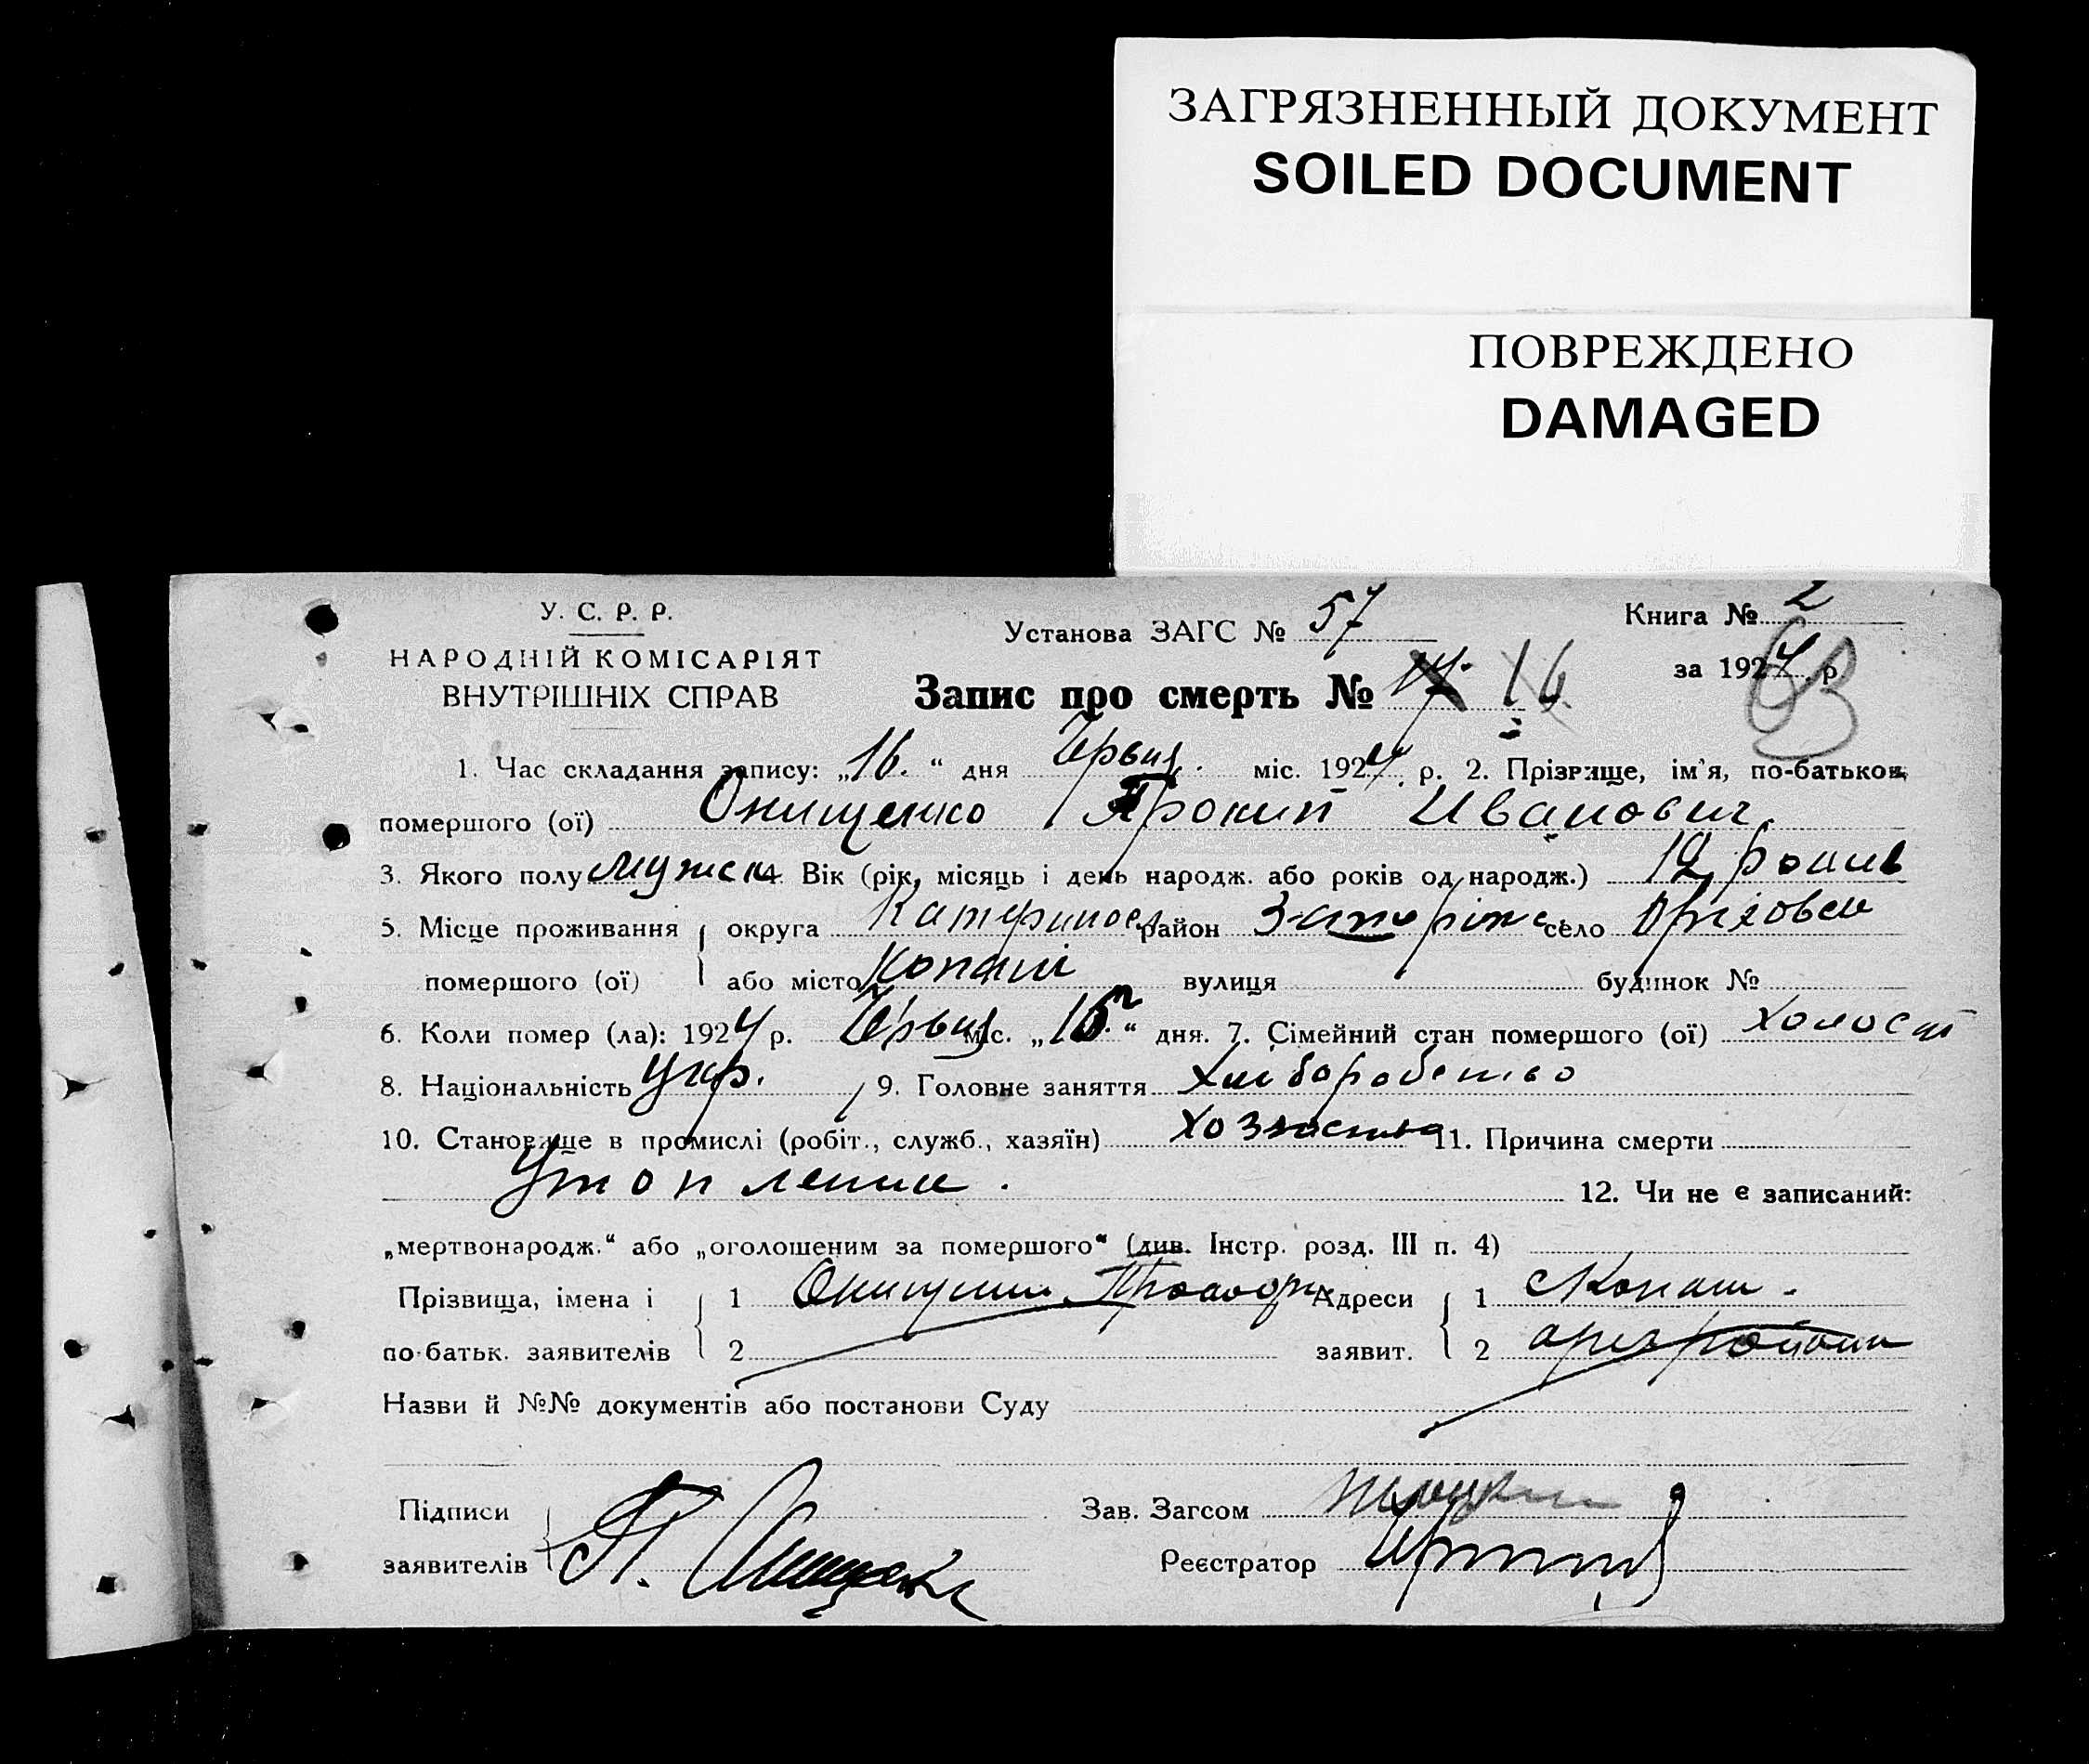 ЗАГРЯЗНЕННЫЙ ДОКУМЕНТ
SOILED DOCUMENT
ПОВРЕЖДЕНО
DAMAGED
У. С. Р. Р.
НАРОДНІЙ КОМІСАРІЯТ
ВНУТРІШНІХ СПРАВ
Установа ЗАГС № 57
Книга № 2
за 1924 р
63
Запис про смерть № 17. 16
1. Час складання запису: „16.“ дня Червця. міс. 1924 р. 2. Прізвище, ім'я, по-батькові
помершого (ої) Онищенко Прокип Иванович.
3. Якого полу мужск 4. Вік (рік, місяць і день народж. або років од народж.) 12 роців
5. Місце проживання округа Катеринос район Запоріж село Оріховск
помершого (ої) або місто Копані вулиця будинок №
6. Коли помер (ла): 1924 р. Червця міс. „16“ дня. 7. Сімейний стан помершого (ої) холост
8. Національність Укр. 9. Головне заняття Хліборобство
10. Становище в промислі (робіт., служб., хазяїн) 11. Причина смерти
Утопление.
12. Чи не є записаний:
„мертвонародж.“ або „оголошеним за помершого“ (див. Інстр. розд. III п. 4)
Прізвища, імена і 1 Адреси 1 с Копани.
по-батьк. заявителів 2 заявит. 2
Назви й №№ документів або постанови Суду
Підписи
Зав. Загсом
заявителів П.
Реєстратор